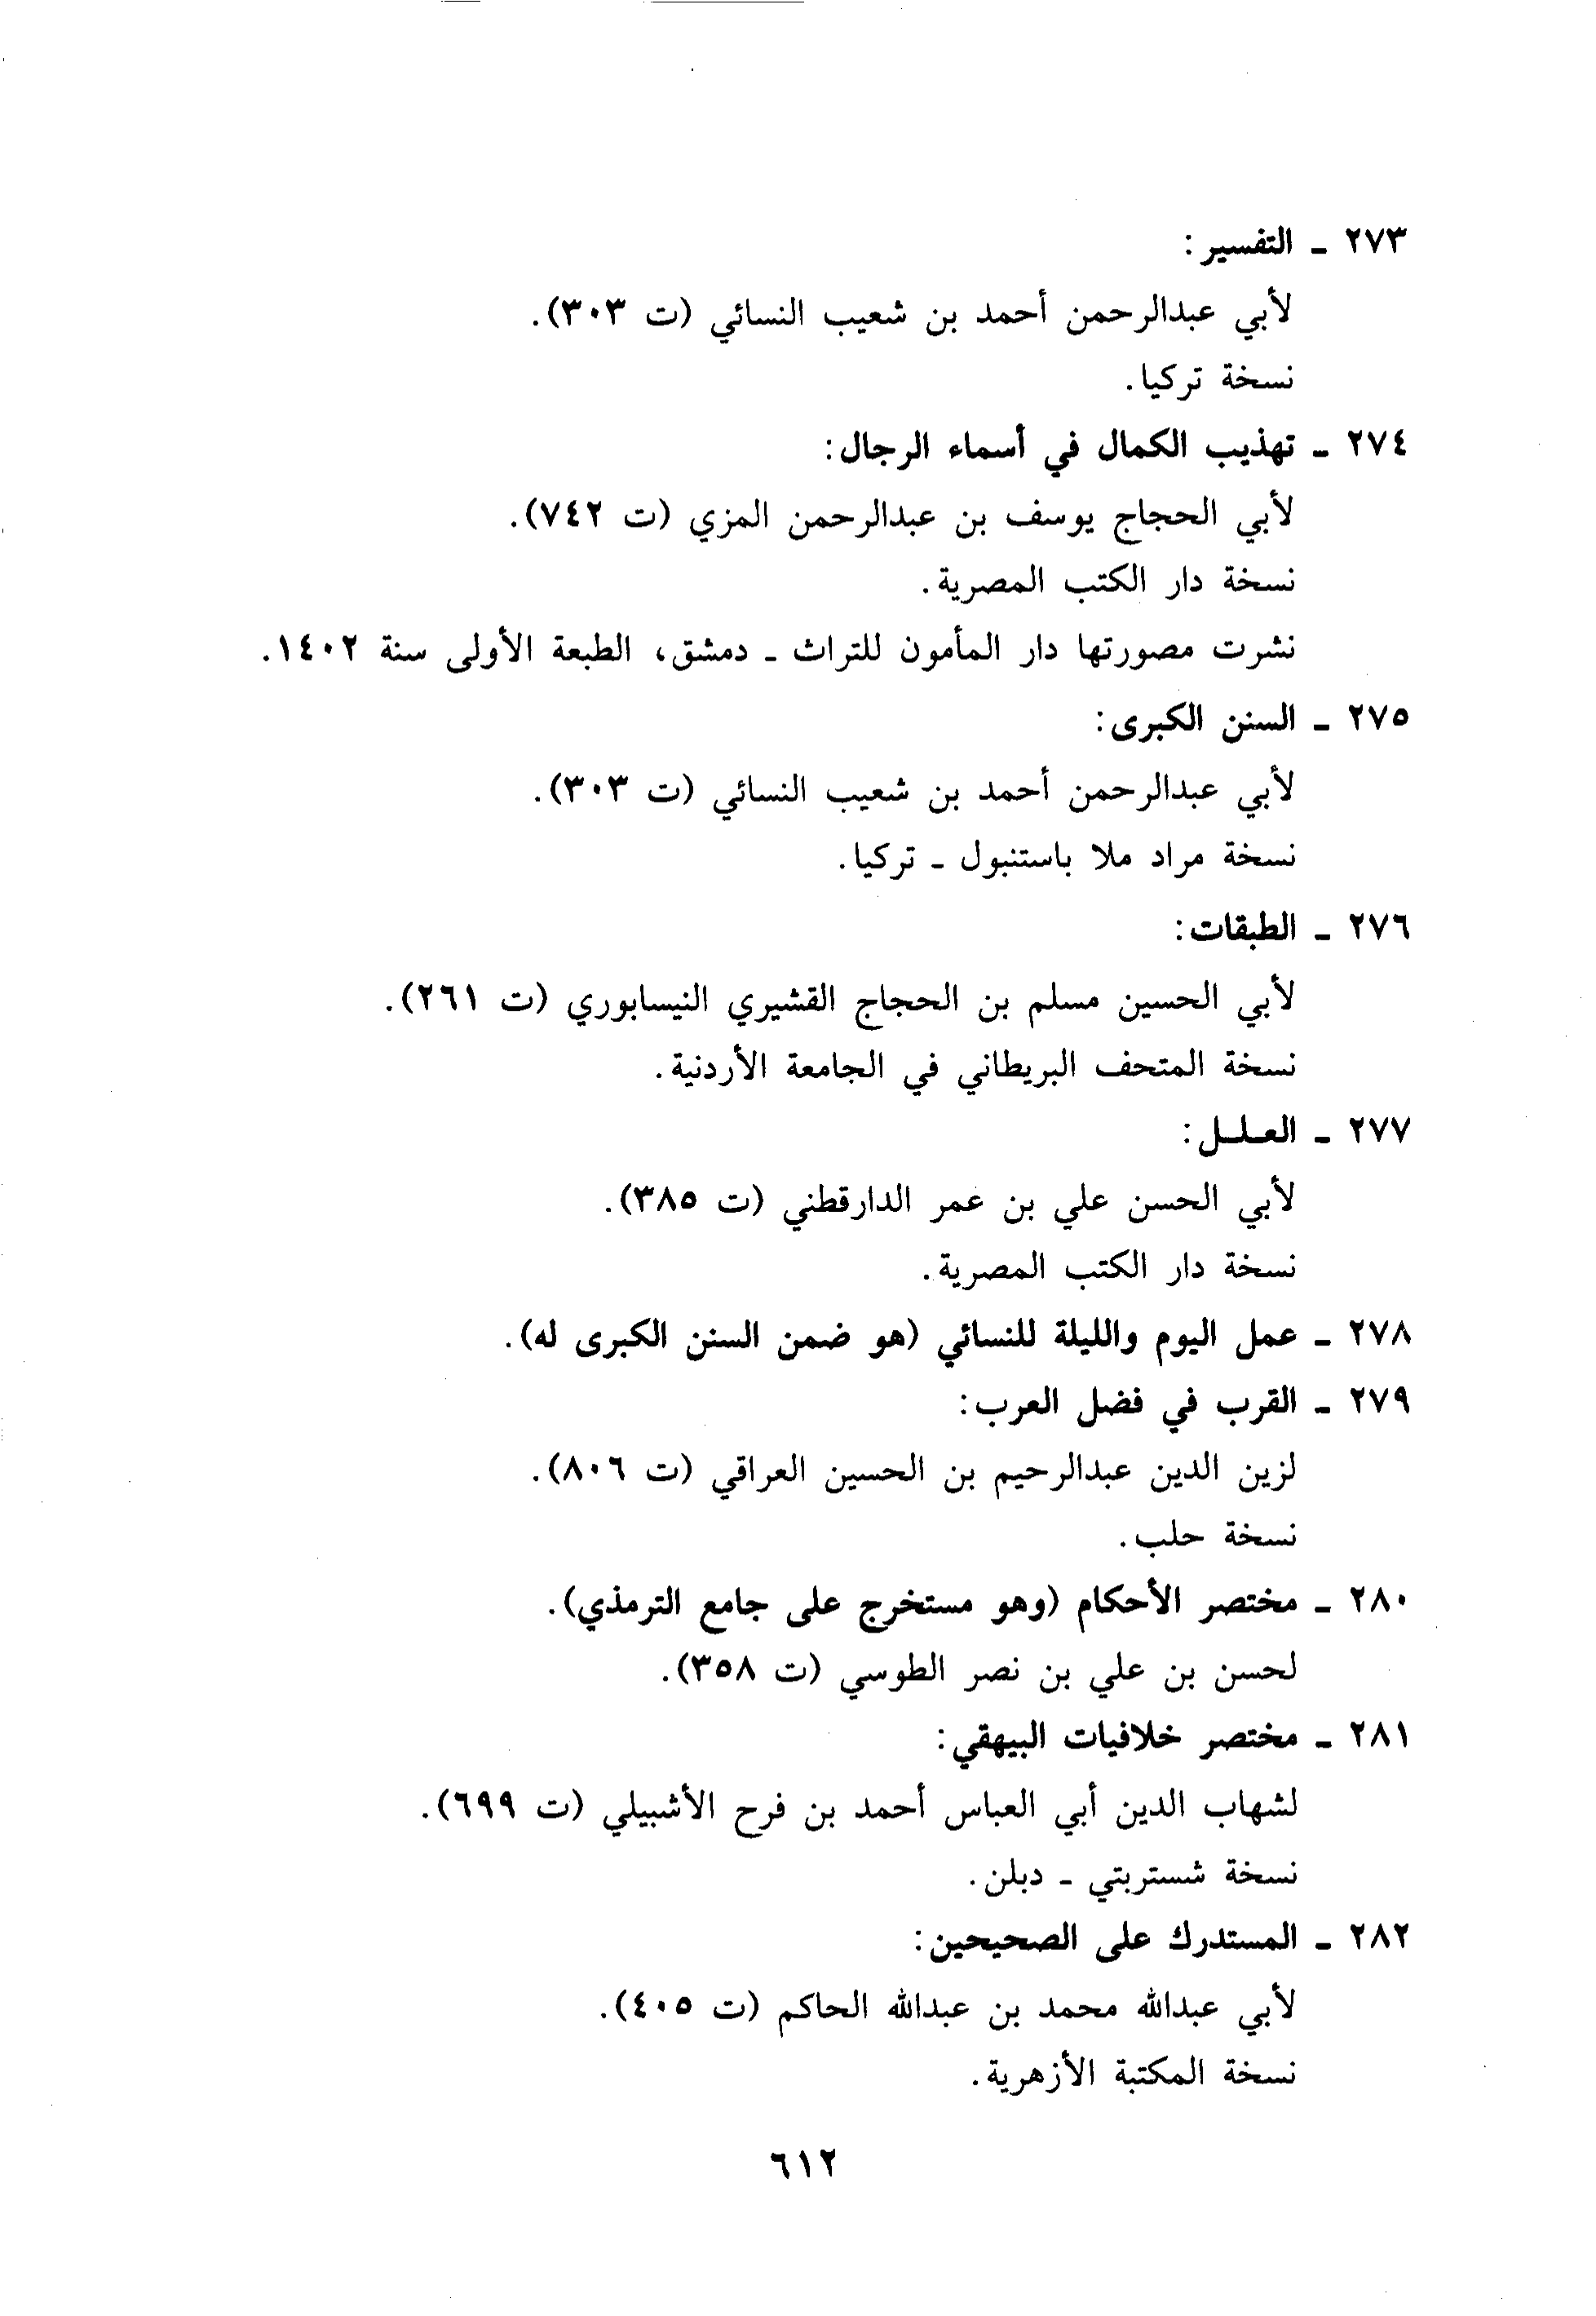 ٢٧٣ ـ التفسير:
لأبي عبدالرحمن أحمد بن شعيب النسائي (ت ٣٠٣).
نسخة تركيا.
٢٧٤ ـ تهذيب الكمال في أسماء الرجال:
لأبي الحجاج يوسف بن عبدالرحمن المزي (ت ٧٤٢).
نسخة دار الكتب المصرية.
نشرت مصورتها دار المأمون للتراث ـ دمشق، الطبعة الأولى سنة ١٤٠٢.
٢٧٥ ـ السنن الكبرى:
لأبي عبدالرحمن أحمد بن شعيب النسائي (ت ٣٠٣).
نسخة مراد ملا باستنبول ـ تركيا.
٢٧٦ ـ الطبقات:
لأبي الحسين مسلم بن الحجاج القشيري النيسابوري (ت ٢٦١).
نسخة المتحف البريطاني في الجامعة الأردنية.
٢٧٧ ـ العلـل:
لأبي الحسن علي بن عمر الدارقطني (ت ٣٨٥).
نسخة دار الكتب المصرية.
٢٧٨ ـ عمل اليوم والليلة للنسائي (هو ضمن السنن الكبرى له).
٢٧٩ ـ القرب في فضل العرب:
لزين الدين عبدالرحيم بن الحسين العراقي (ت ٨٠٦).
نسخة حلب.
٢٨٠ ـ مختصر الأحكام (وهو مستخرج على جامع الترمذي).
لحسن بن علي بن نصر الطوسي (ت ٣٥٨).
٢٨١ ـ مختصر خلافيات البيهقي:
لشهاب الدين أبي العباس أحمد بن فرح الأشبيلي (ت ٦٩٩).
نسخة شستربتي ـ دبلن.
٢٨٢ ـ المستدرك على الصحيحين:
لأبي عبدالله محمد بن عبدالله الحاكم (ت ٤٠٥).
نسخة المكتبة الأزهرية.
٦١٢